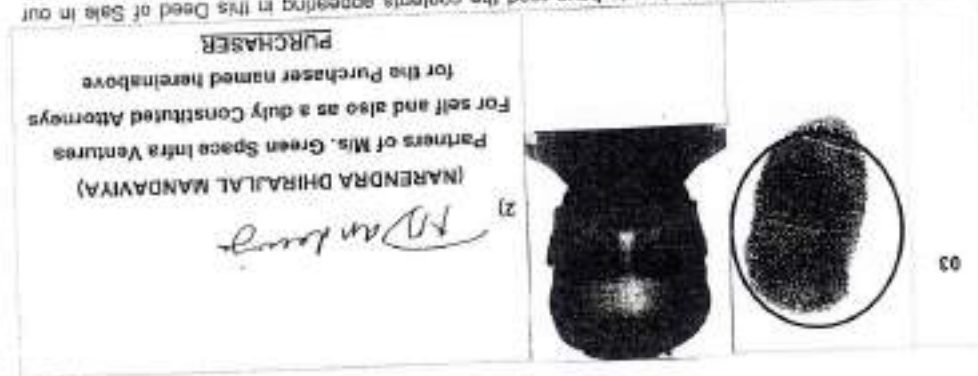 03
2)
(NARENDRA DHIRAJLAL MANDAVIYA)
Partners of M/s. Green Space Infra Ventures
For self and also as a duly Constituted Attorneys
for the Purchaser named hereinabove
PURCHASER
read the contents appearing in this Deed of Sale in our